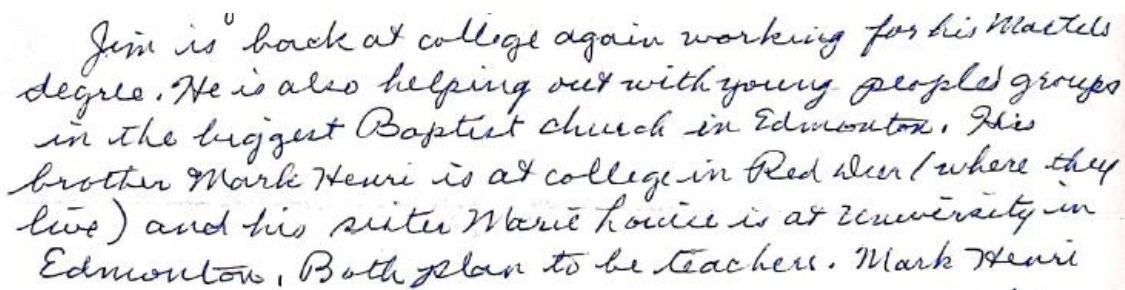 Jim is back at college again working for his Masters
degree. He is also helping out with young people's groups
in the biggest Baptist church in Edmonton. His
brother Mark Henri is at college in Red Deer (where they
live) and his sister Marie Louise is at University in
Edmonton. Both plan to be teachers. Mark Henri